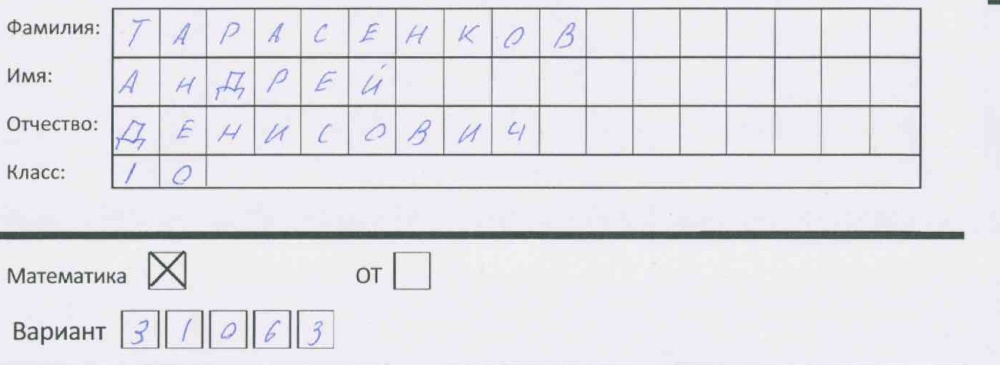 Фамилия: ТАРАСЕНКОВ
Имя: АНДРЕЙ
Отчество: ДЕНИСОВИЧ
Класс: 10
Математика ☒ ОТ ☐
Вариант 31063